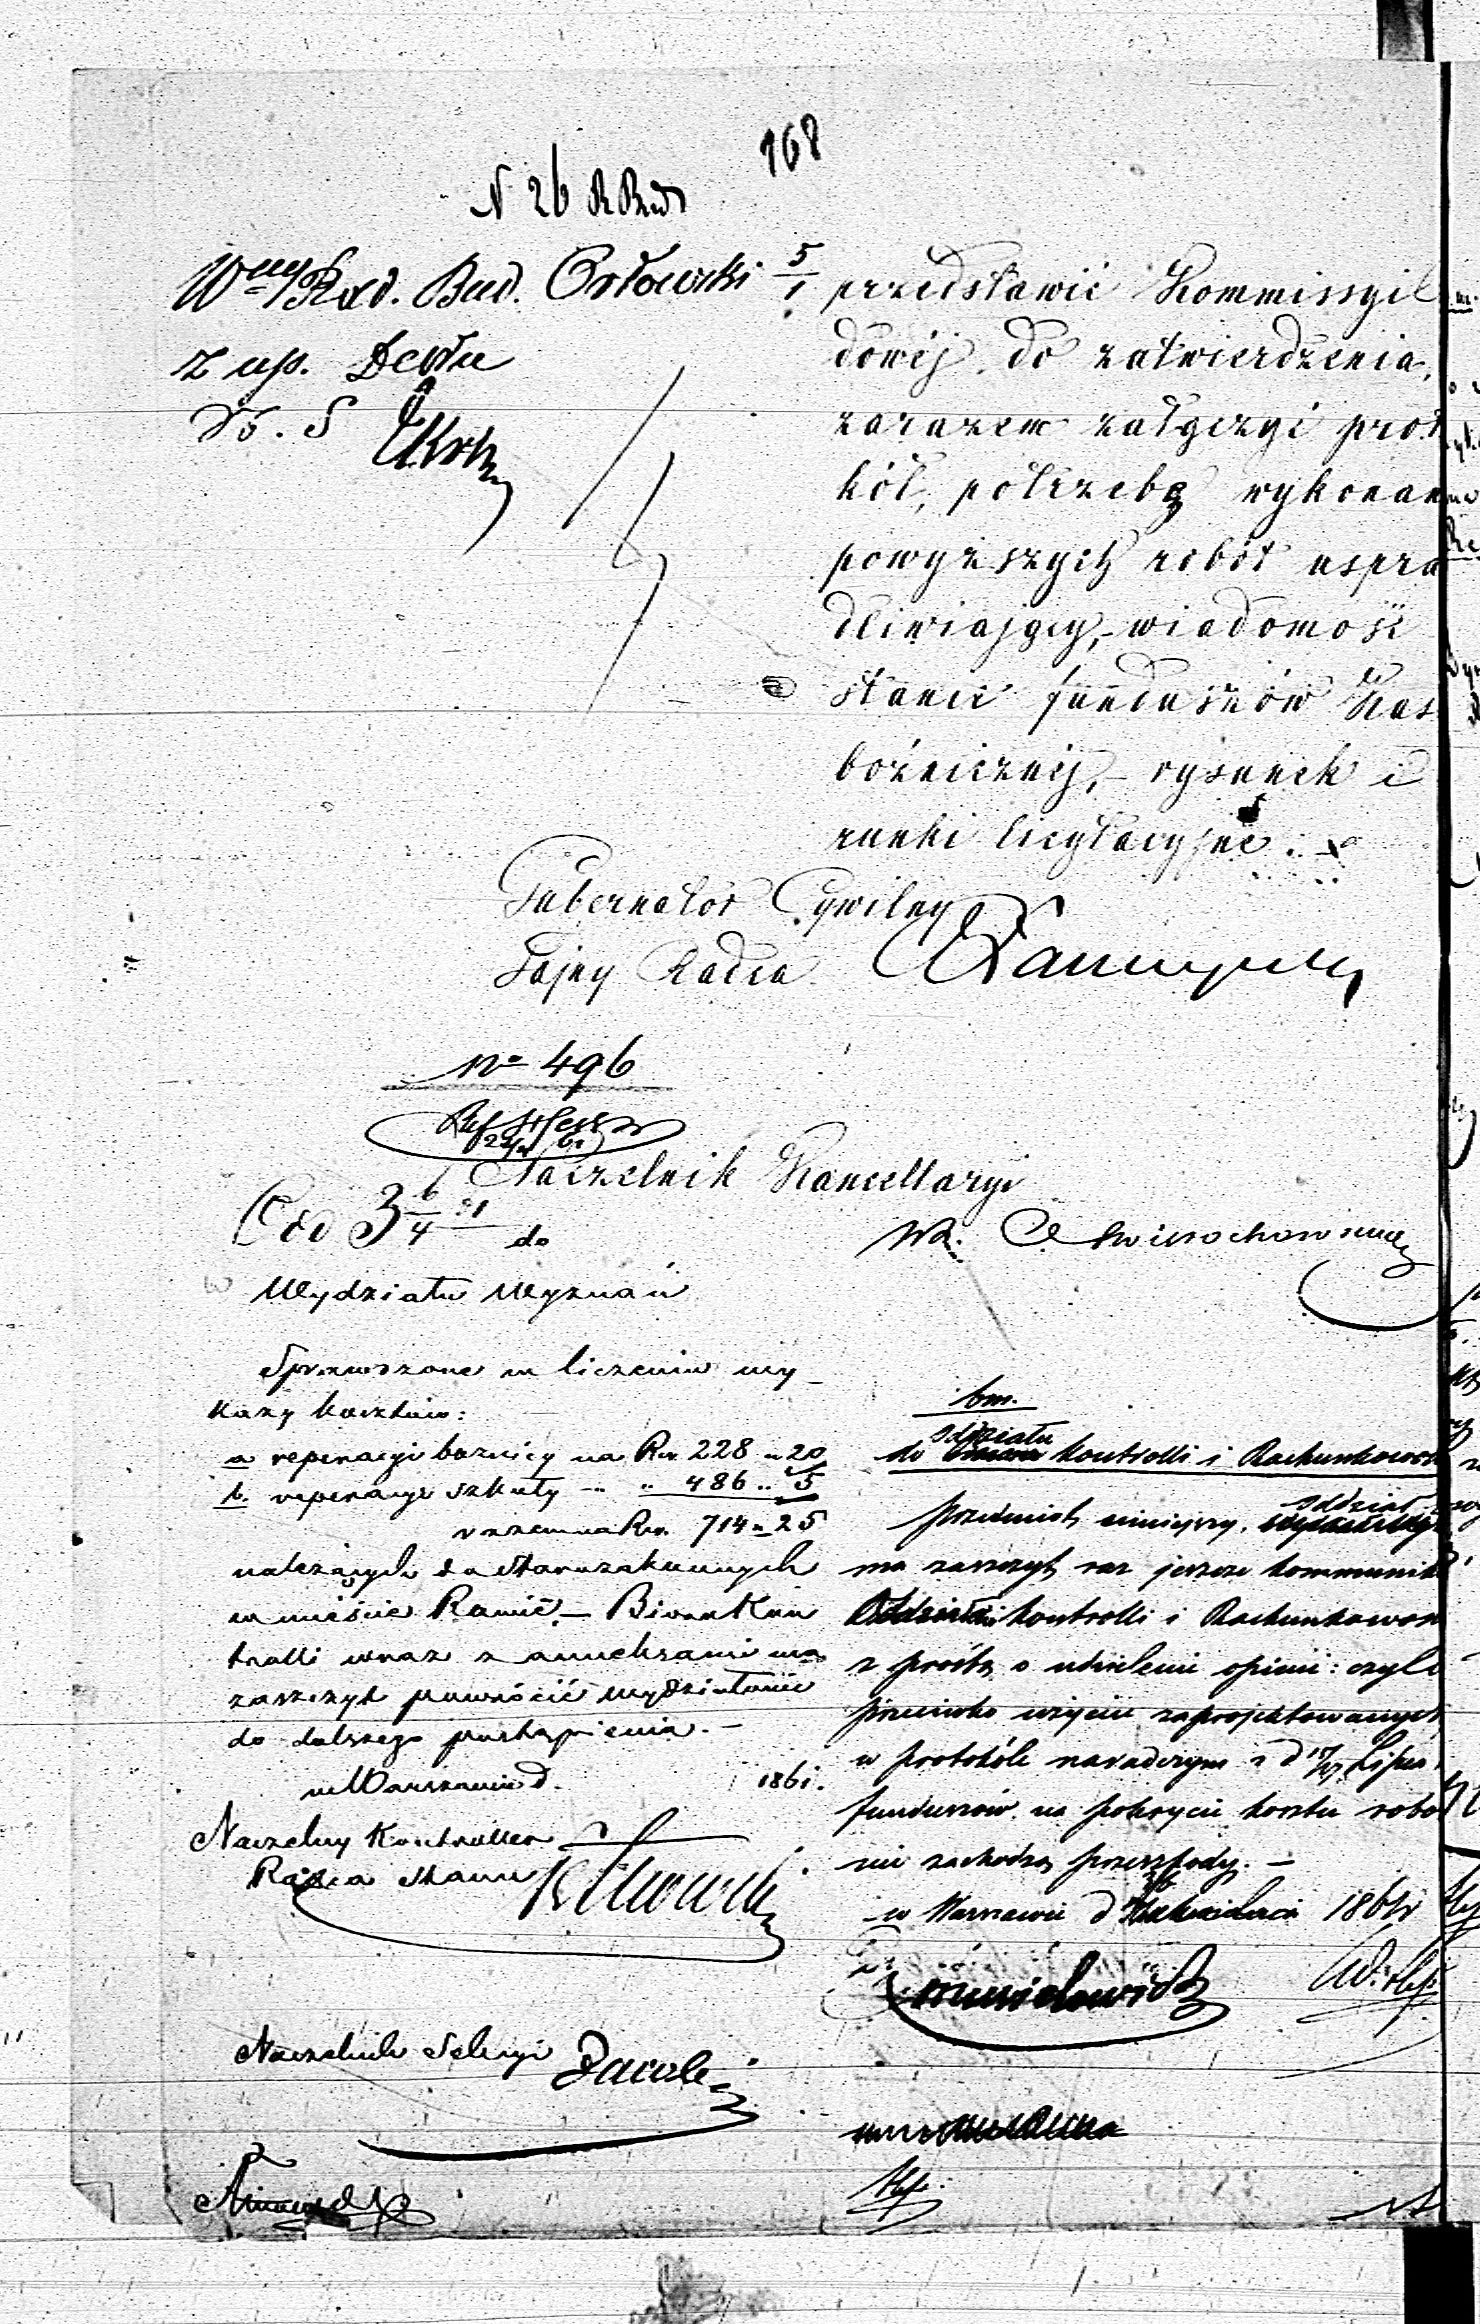 168
N 26 R Bud
Wny Rad. Bud. Orłowski 5/1
z up. Dcyra
przedstawić Kommissyi
dowéj do zatwierdzenia,
zarazem załączyć proto
kół, potrzebę wykonan
powyższych robót uspra
dliwiający,- wiadomość
stanie funduszów Kas
bóżnicznéj,- rysunek i
runki licytacyjne.
Gubernator Cywilny
Tajny Radca
No 496
Naczelnik Kancellaryi
do
Wydziału Wyznań
Sprawdzone w liczeniu wy-
kazy kosztów:
a reperacyi bożnicy na Rsr. 228 „ 20
b. reperacyi szkoły - .. .. 486 .. 5
razem na Rsr. 714 „ 25
należących do starozakonnych
w mieście Rawie - Biuro Kon
trolli wraz z annexami ma
zaszczyt powrócić Wydziałowi
do dalszego postąpienia. -
w Warszawie d. 1861.
Naczelny Kontroller
Radca Stanu
Naczelnik Sekcyi
bm.
oddziału
do kontrolli i Rachunkowoś
Przedmiot niniejszy, oddział
ma zaszczyt raz jeszcze kommunik
kontrolli i Rachunkowoś
z prośbą o udzielenie opinii: czyli
przeciwko użyciu zaprojektowanych
w protokóle naradczym z d 15/27 Lipca
funduszów, na pokrycie kosztu robo
nie zachodzą przeszkody. -
w Warszawie d 1861 r